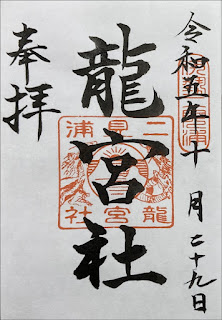 令和五年十月二十九日
龍宮社
奉拝
二見浦
龍宮社